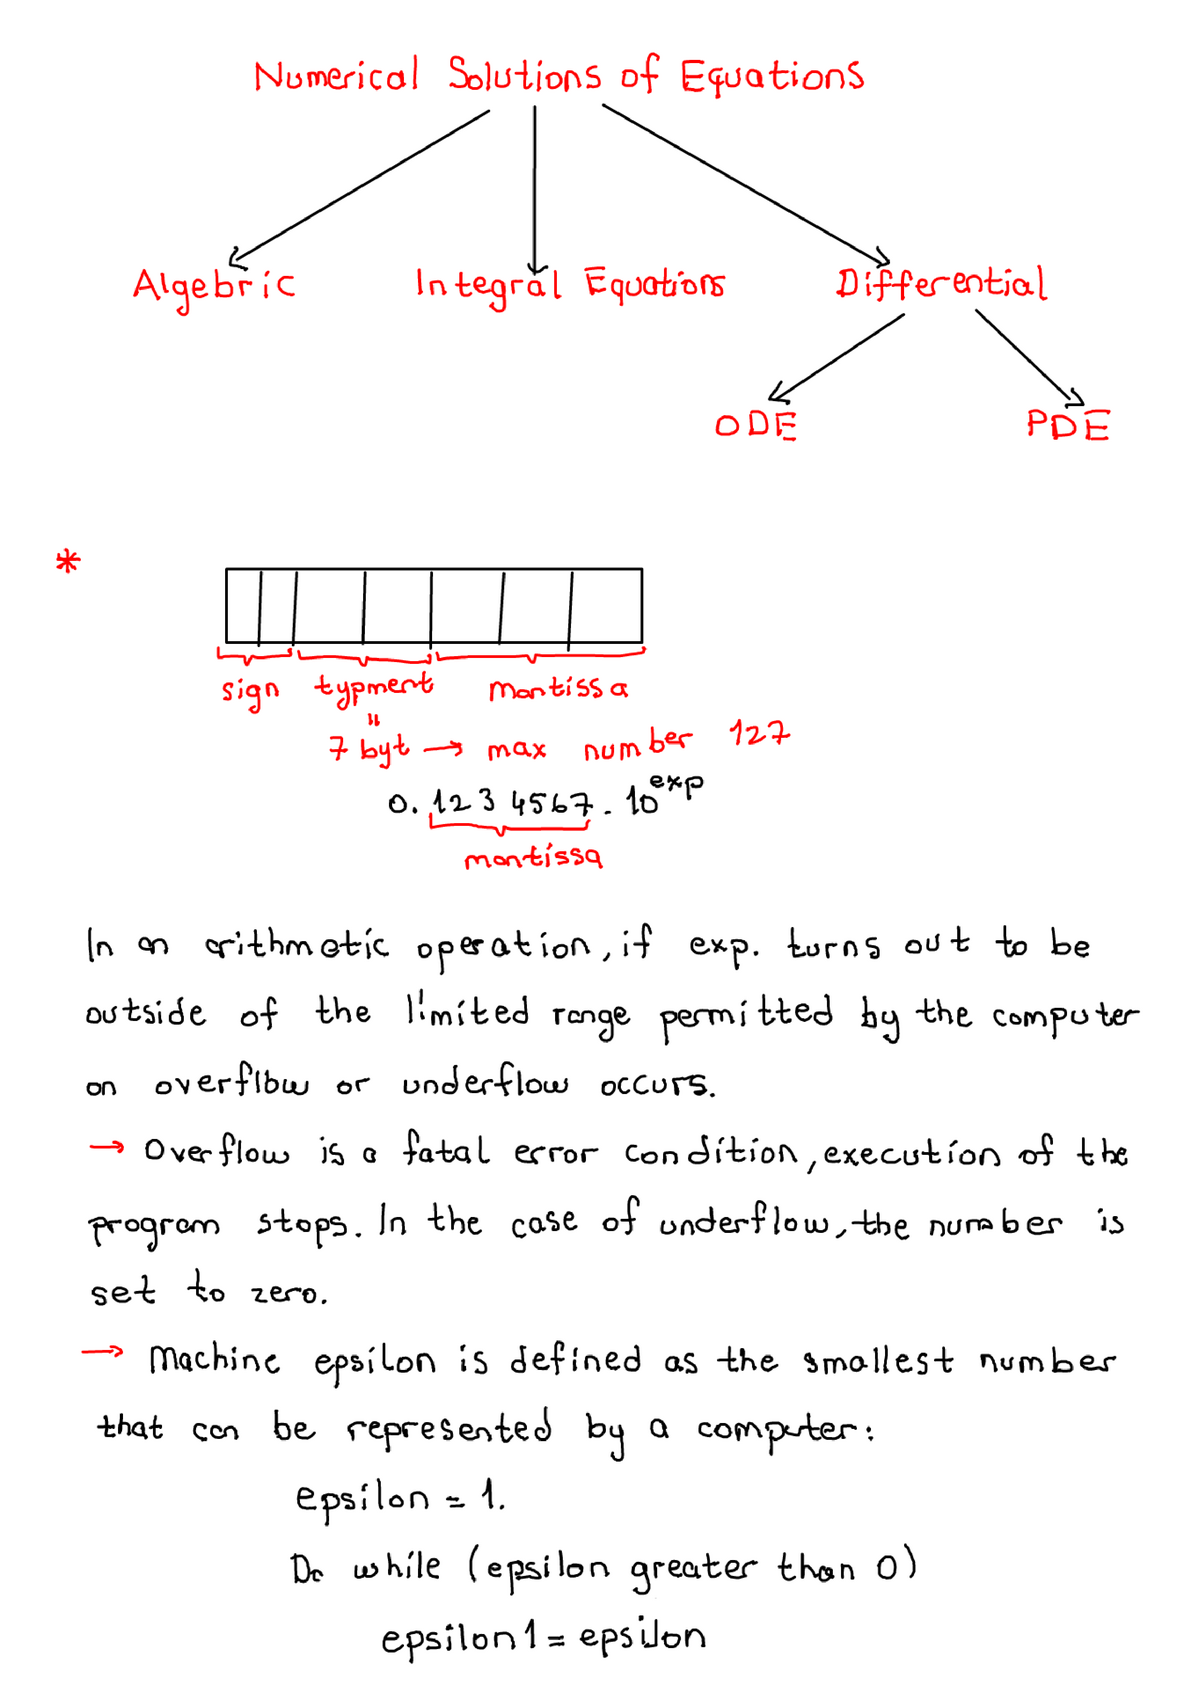 Numerical Solutions of Equations
Algebric Integral Equations Differential
ODE PDE
*
sign typment mantissa
"
7 byt → max number 127
0.1234567.10^exp
mantissa
In an arithmetic operation, if exp. turns out to be
outside of the limited range permitted by the computer
an overflow or underflow occurs.
→ Overflow is a fatal error condition, execution of the
program stops. In the case of underflow, the number is
set to zero.
→ Machine epsilon is defined as the smallest number
that can be represented by a computer:
epsilon = 1.
Do while (epsilon greater than 0)
epsilon1 = epsilon